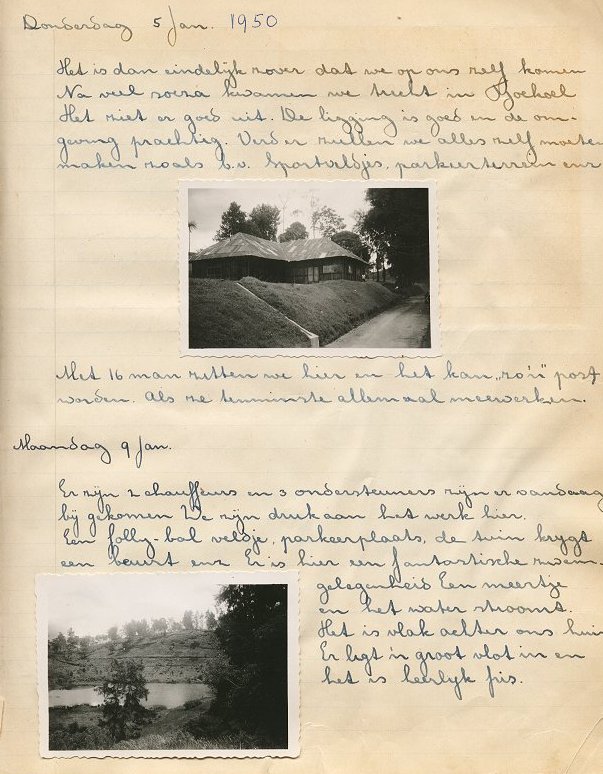 Donderdag 5 Jan. 1950
Het is dan eindelijk zover dat we op ons zelf komen
Na veel soesa kwamen we trekt in Tjoekoel
Het ziet er goed uit. De ligging is goed en de om-
geving prachtig. Verder zullen we alles zelf moeten
maken zoals b.v. Sportveldjes, parkeerterrein enz
Met 16 man zitten we hier en het kan „zo'n" post
worden. Als ze tenminste allemaal meewerken.
Maandag 9 Jan.
Er zijn 2 chauffeurs en 3 ondersteuners zijn er vandaag
bij gekomen We zijn druk aan het werk hier.
Een folly-bal veldje, parkeerplaats, de tuin krygt
een beurt enz Er is hier een fantastische zwem-
gelegenheid Een meertje
en het water stroomt.
Het is vlak achter ons huis
Er ligt 'n groot vlot in en
het is heerlyk fris.